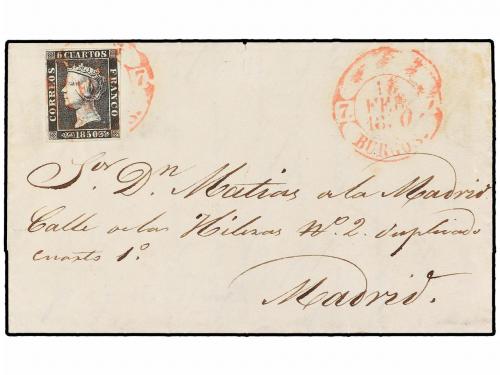 6 CUARTOS
CORREOS
FRANCO
1850
16
FEB
1850
BURGOS
Sor. Dn. Matias de la Madrid
Calle de las Hileras No. 2. duplicado
cuarto 1º
Madrid.